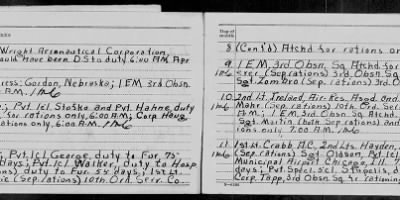 Wright Aeronautical Corporation,
ould have been DS to duty 6:00 A.M. Apr
ress: Gordon, Nebraska; 1 EM 3rd Obsn.
A.M. 1 to 6
; Pvt. 1cl Stoska and Pvt. Hahne, duty
for rations only, 6:00 A.M.; Corp. Haug
ations only, 6:00 A.M. 1 to 6
; Pvt. 1cl George, duty to Fur, 75
days; Pvt. 1cl Walker, duty to Hosp
ons) duty to Fur 55 days; 1st Lt.
(Sep. rations) 10th Ord. Serv. Co.
Day of
8 (Con't'd) Atchd for rations or
9 1 EM, 3rd Obsn. Sq. Atchd for
1 to 6 (Sep rations) 3rd Obsn. Sq
Sgt. Zombro (Sep rations) 3rd O
10 2nd Lt. Ireland, Air-Res. Asgd and
1 to 6 Mahr, (Sep. rations) 10th Ord. Ser
A.M.; 1 EM, 3rd Obsn. Sq Atchd
Sgt. Martin (both Sep rations) and
ions only 7:00 A.M. 1 to 6
11 1st Lt. Crabb, AC, 2nd Lts. Hayden,
1 to 6 (Sep rations) Sgt. Olason, Pvt. 1cl
Municipal Airport Chicago, Ill.
days; Pvt. Spcl. 5cl. Stapolis, d
Corp. Tapp, 3rd Obsn. Sq for rations